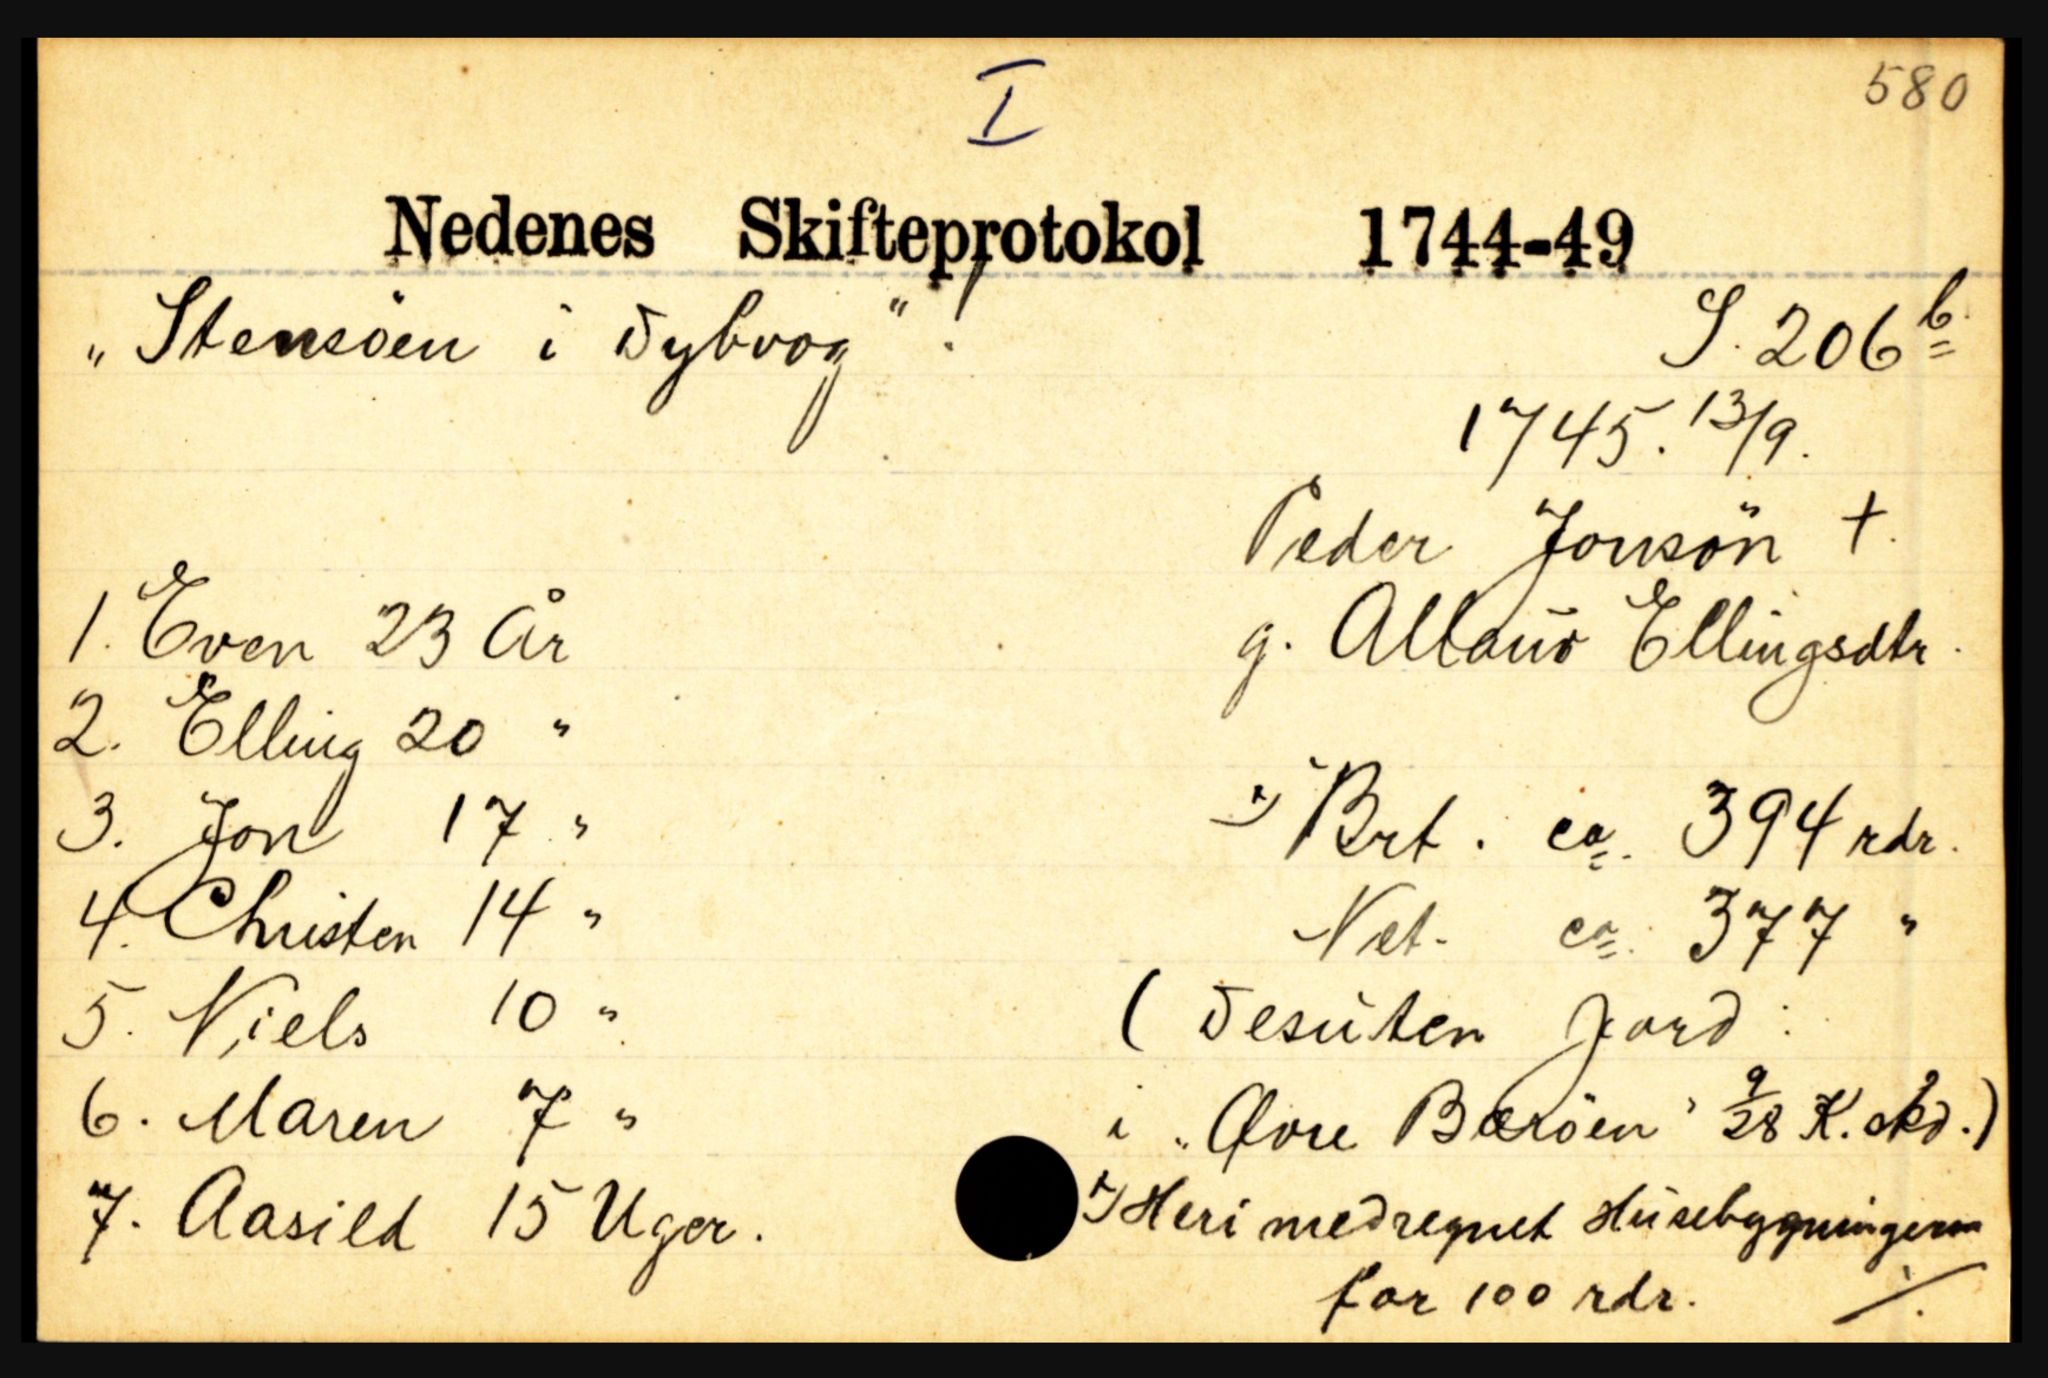 I
580
Nedenes Skifteprotokol 1744-49
„Stensöen i Dybvog".
S. 206 b
1745. 13/9.
Peder Jonsön †.
g. Allaug Ellingsdtr.
1. Even 23 År
2. Elling 20 "
3. Jon 17 "
4. Christen 14 "
5. Niels 10 "
6. Maren 7 "
7. Aasild 15 Uger.
x) Brt. ca. 394 rdr.
Net. ca. 377 "
(Desuten Jord:
i „Øvre Boröen" 9/28 K. skd.)
x) Heri medregnet Husebygningerne
for 100 rdr. ./.